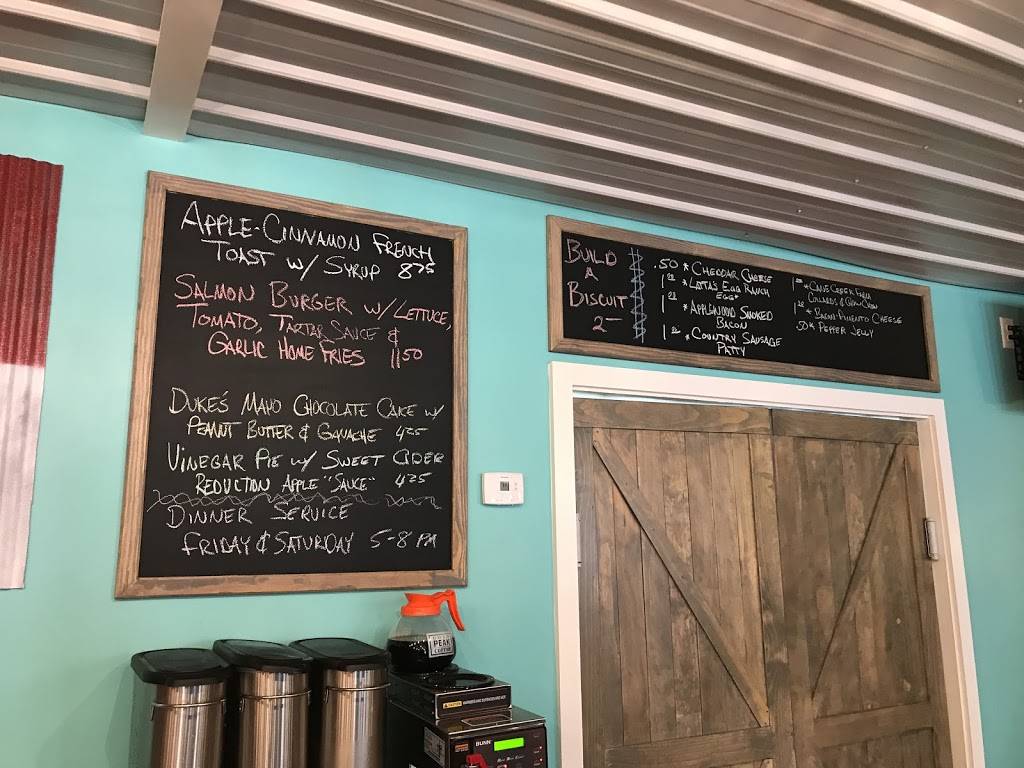 APPLE-CINNAMON FRENCH
TOAST W/ SYRUP 875
SALMON BURGER W/ LETTUCE,
TOMATO, TARTAR SAUCE &
GARLIC HOME FRIES 1150
DUKE'S MAYO CHOCOLATE CAKE W/
PEANUT BUTTER & GANACHE 425
VINEGAR PIE W/ SWEET CIDER
REDUCTION APPLE "SAUCE" 425
DINNER SERVICE
FRIDAY & SATURDAY 5-8 PM
BUILD
A
BISCUIT
2-
.50 * CHEDDAR CHEESE
* EGG RANCH
EGG*
* APPLEWOOD SMOKED
BACON
* COUNTRY SAUSAGE
PATTY
* CANE CREEK FARM
COLLARDS & CHOW CHOW
* BACON PIMENTO CHEESE
50 * PEPPER JELLY
PEAK
COFFEE
CAUTION
BUNN